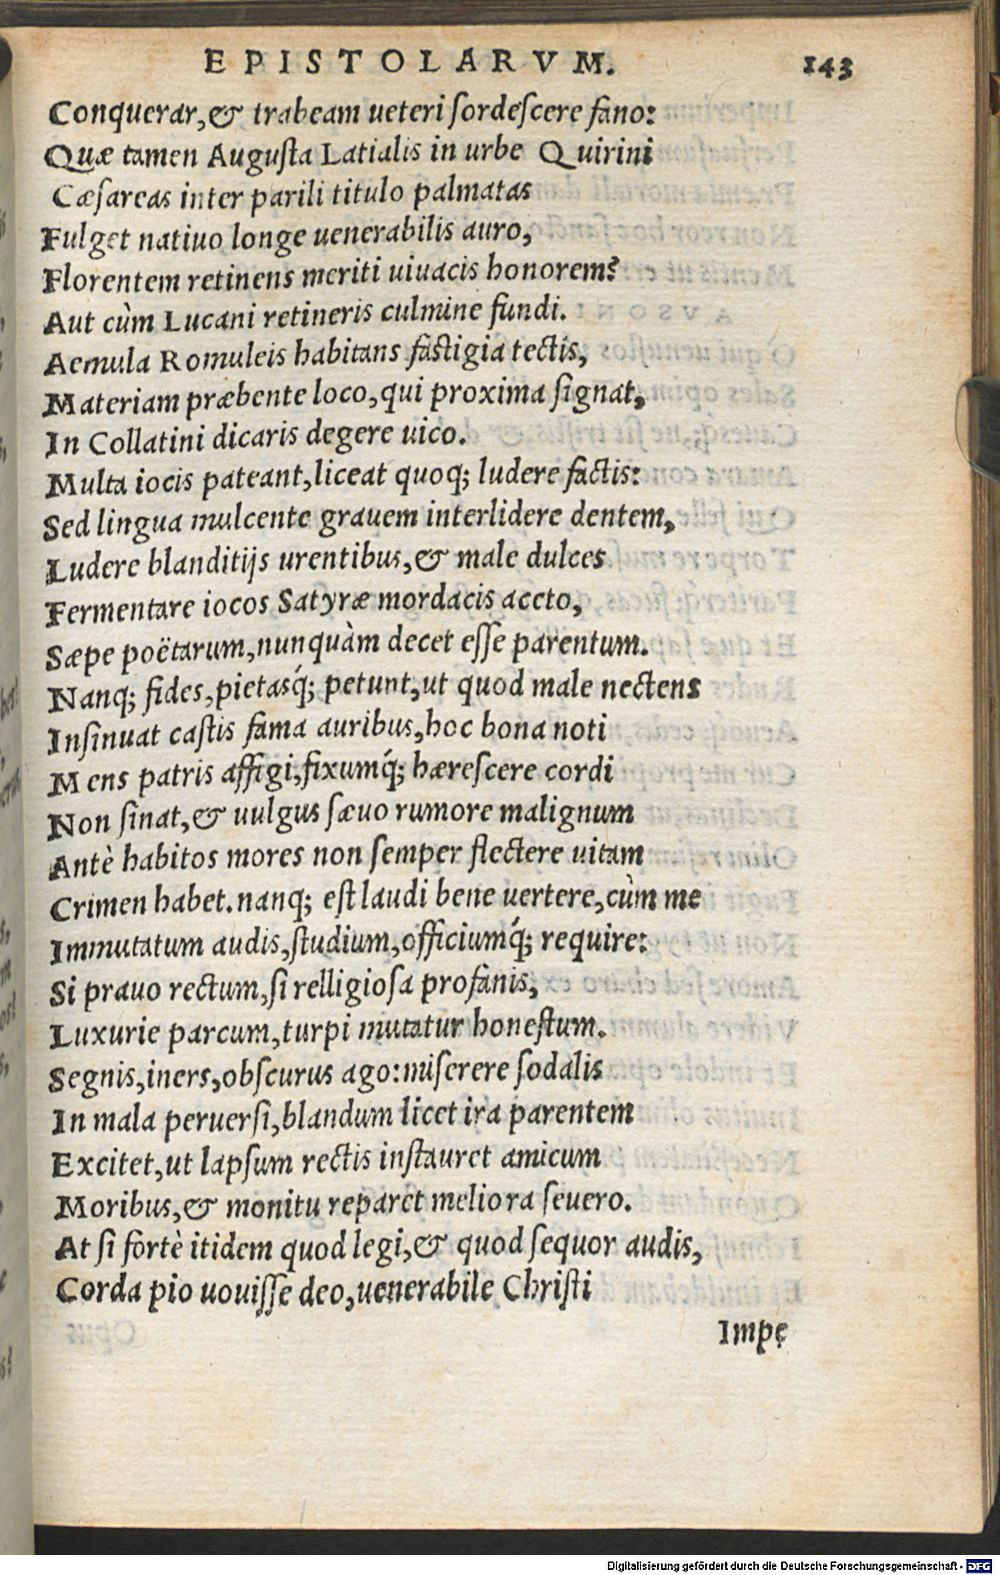 EPISTOLARVM. 143
Conquerar,& trabeam ueteri ſordeſcere fano:
Quæ tamen Auguſta Latialis in urbe Quirini
Cæſareas inter parili titulo palmatas
Fulget natiuo longe uenerabilis auro,
Florentem retinens meriti uiuacis honorem?
Aut cùm Lucani retineris culmine fundi.
Aemula Romuleis habitans faſtigia tectis,
Materiam præbente loco,qui proxima ſignat,
In Collatini dicaris degere uico.
Multa iocis pateant,liceat quoq; ludere factis:
Sed lingua mulcente grauem interlidere dentem,
Ludere blanditijs urentibus,& male dulces
Fermentare iocos Satyræ mordacis aceto,
Sæpe poëtarum,nunquàm decet eſſe parentum.
Nanq; fides,pietasq́; petunt,ut quod male nectens
Inſinuat caſtis fama auribus,hoc bona noti
Mens patris affigi,fixumq́; hæreſcere cordi
Non ſinat,& uulgus ſæuo rumore malignum
Antè habitos mores non ſemper flectere uitam
Crimen habet.nanq; eſt laudi bene uertere,cùm me
Immutatum audis,ſtudium,officiumq́; require:
Si prauo rectum,ſi relligioſa profànis,
Luxurie parcum,turpi mutatur honeſtum.
Segnis,iners,obſcurus ago:miſerere ſodalis
In mala peruerſi,blandum licet ira parentem
Excitet,ut lapſum rectis inſtauret amicum
Moribus,& monitu reparet meliora ſeuero.
At ſi fortè itidem quod legi,& quod ſequor audis,
Corda pio uouiſſe deo,uenerabile Chriſti
Impe
Digitalisierung gefördert durch die Deutsche Forschungsgemeinschaft - DFG